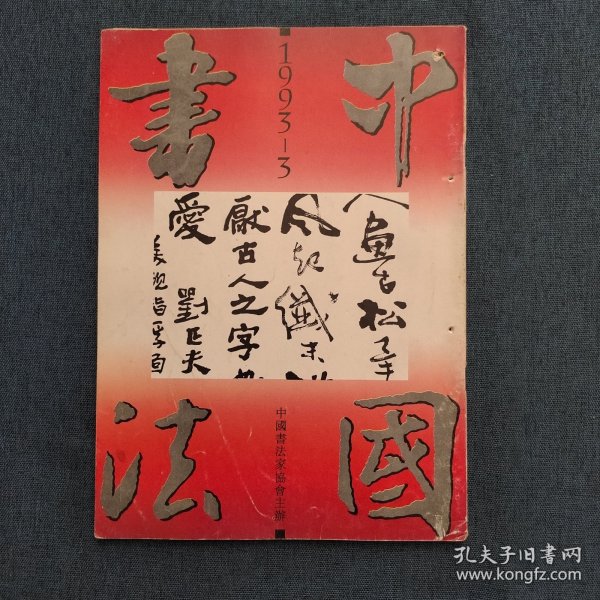 中國
書法
1993-3
畫古松
風起纖末
厭古人之字
愛
劉正夫
中國書法家協會主辦
孔夫子旧书网
www.kongfz.com